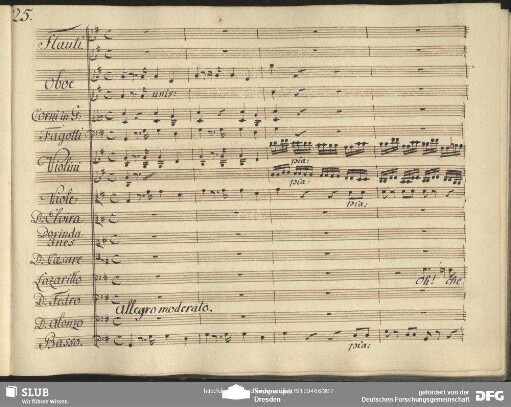 25.
Flauti
Oboe
unis:
Corni in G:
Fagotti
Violini
pia:
pia:
Viole
pia:
D: Elvira
Dorinda
Ines
D: Cesare
Lazarillo
Oh! che
D: Pedro
Allegro moderato.
D: Alonzo
Basso.
pia:
SLUB
Wir führen Wissen.
Dresden
gefördert von der
Deutschen Forschungsgemeinschaft
DFG